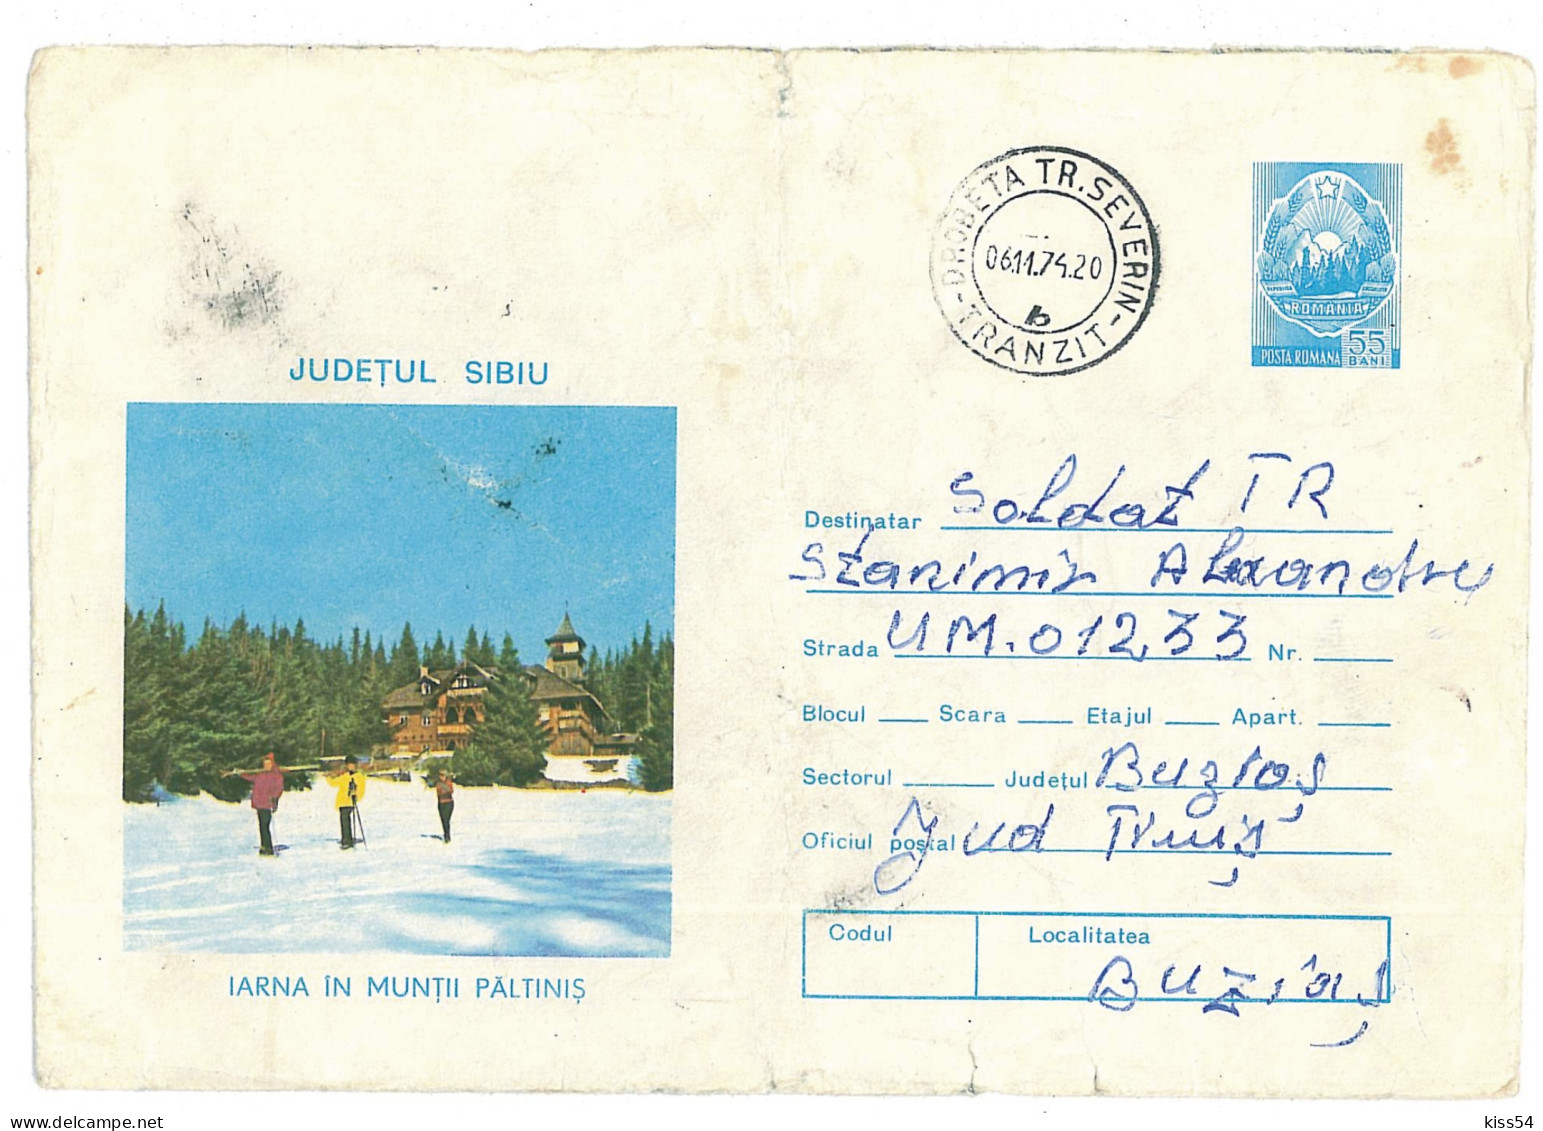 JUDEȚUL SIBIU
IARNA ÎN MUNȚII PĂLTINIȘ
DROBETA TR. SEVERIN
06.11.74.20
b
-TRANZIT-
REPUBLICA SOCIALISTA
ROMÂNIA
POSTA ROMANA 55 BANI
Destinatar Soldat TR
Stanimir Alexandru
Strada UM.01233 Nr.
Blocul Scara Etajul Apart.
Sectorul Județul Buziaș
Oficiul poștal Jud Timiș
Codul Localitatea
Buziaș
kiss54